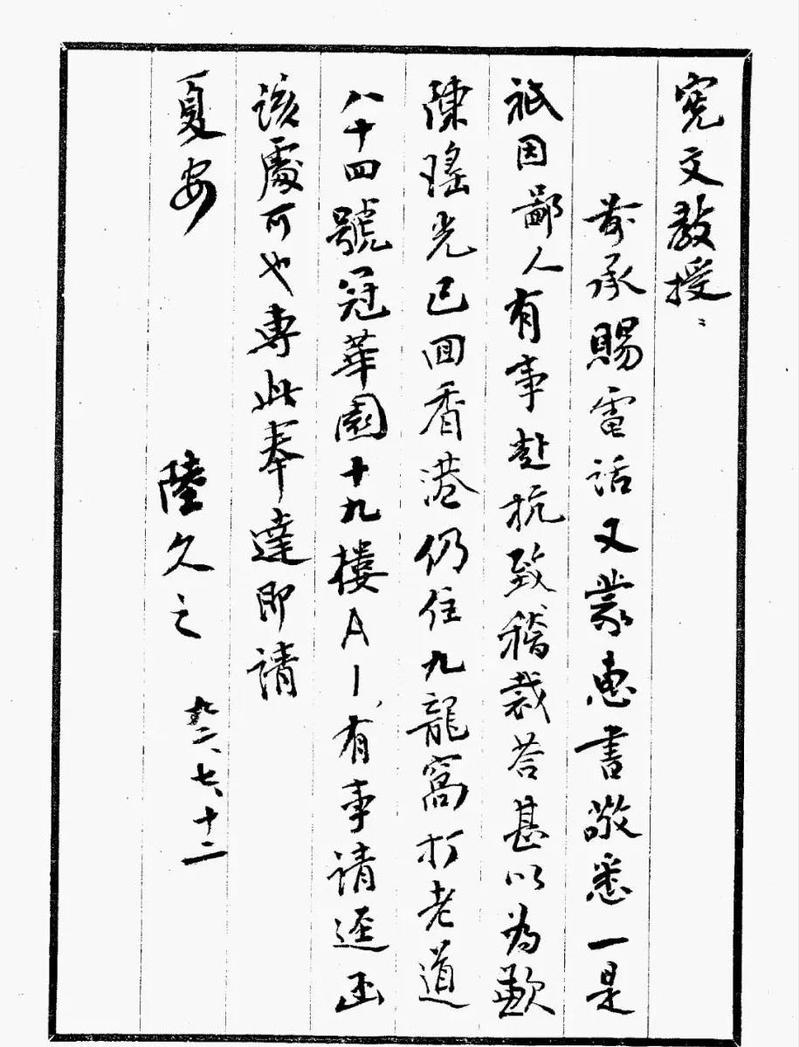 宪文教授：
前承賜電話又蒙惠書敬悉一是
祇因鄙人有事赴杭致稽裁答甚以為歉
陳瑤光已回香港仍住九龍窩打老道
八十四號冠華園十九樓A1，有事请逕函
該處可也專此奉達即请
夏安
陸久之 九二、七、十二